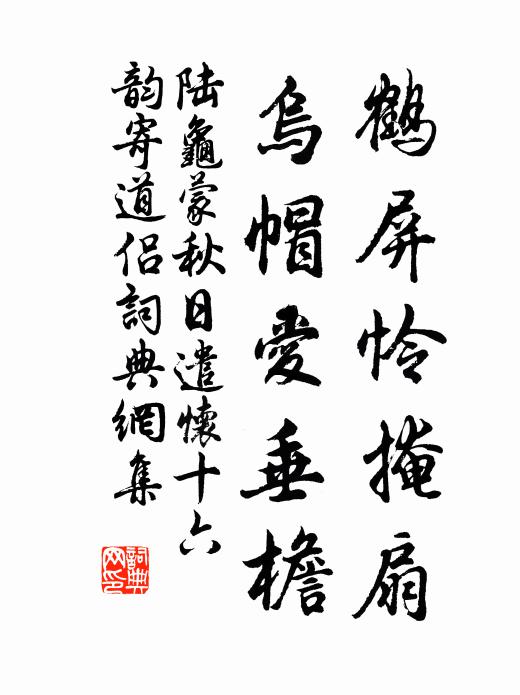 鶴屏怜掩扇
烏帽愛垂檐
陆龜蒙秋日遣懷十六
韵寄道侣詞典網集
詞典網印